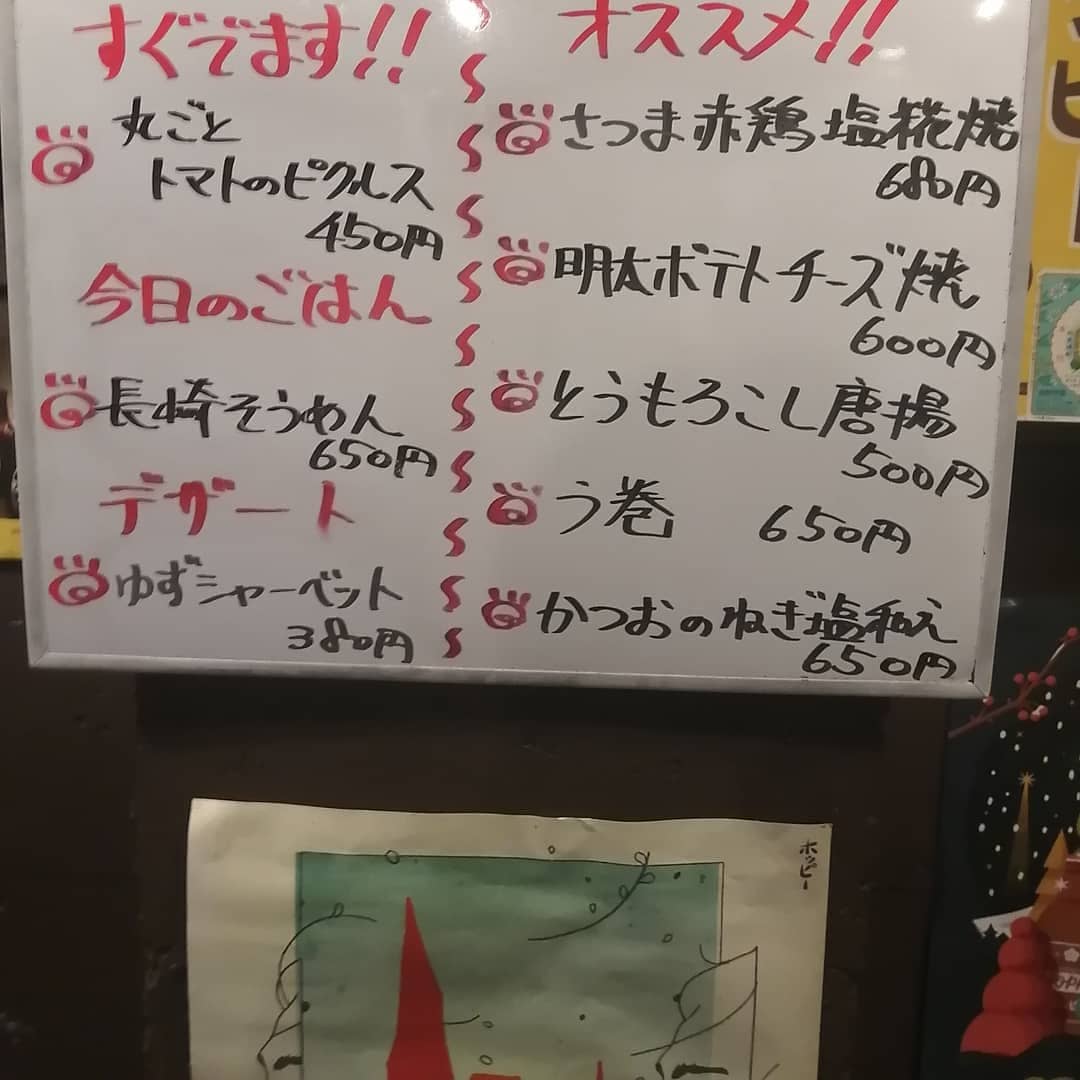 すぐでます!!
丸ごと
トマトのピクルス
450円
今日のごはん
長崎そうめん
650円
デザート
ゆずシャーベット
380円
オススメ!!
さつま赤鶏塩糀焼
680円
明太ポテトチーズ焼
600円
とうもろこし唐揚
500円
う巻 650円
かつおのねぎ塩和え
650円
ホッピー